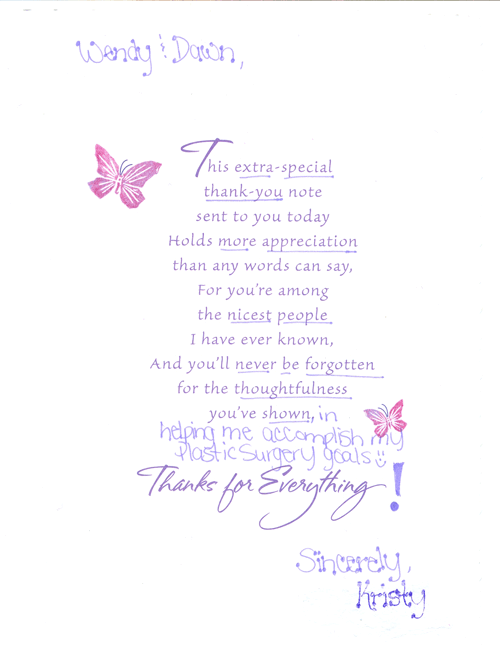 Wendy & Dawn,
This extra-special
thank-you note
sent to you today
Holds more appreciation
than any words can say,
For you're among
the nicest people
I have ever known,
And you'll never be forgotten
for the thoughtfulness
you've shown, in
helping me accomplish my
Plastic Surgery goals
Thanks for Everything!
Sincerely,
Kristy